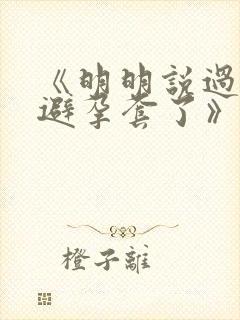 《明明説過
避孕套了》
橙子離